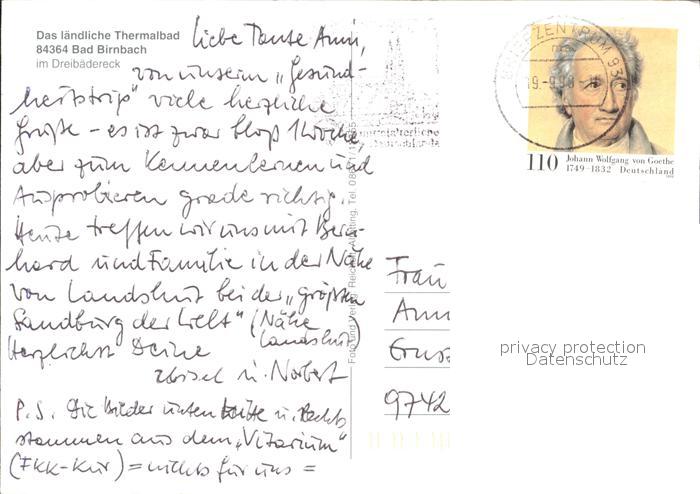 Das ländliche Thermalbad
84364 Bad Birnbach
im Dreibädereck
Liebe Tante Anni,
von unserm „Gesund-
heitstrip" viele herzliche
Grüße – es ist zwar bloß 1 Woche,
aber zum Kennenlernen und
Ausprobieren grade richtig.
Heute treffen wir uns mit Bern-
hard und Familie in der Nähe
von Landshut bei der „größten
Sandburg der Welt" (Nähe
Landshut)
Herzlichst Deine
u. Norbert
P.S. Die Bilder unten u. rechts
stammen aus dem „Vitarium"
(FKK-Kur) = nichts für uns =
Foto und Verlag
BRIEFZENTRUM 93
mittelalterliche
110 Johann Wolfgang von Goethe
1749–1832 Deutschland
Frau
Anni
9742
privacy protection
Datenschutz